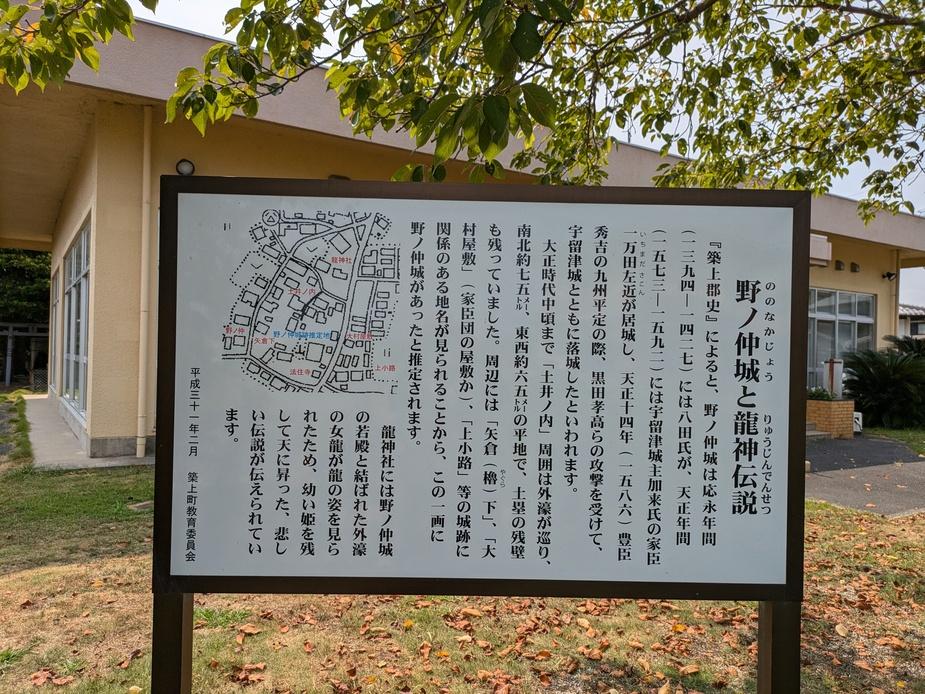 野ノ仲城と龍神伝説
ののなかじょう　りゅうじんでんせつ
『築上郡史』によると、野ノ仲城は応永年間
（一三九四―一四二七）には八田氏が、天正年間
（一五七三―一五九二）には宇留津城主加来氏の家臣
一万田左近が居城し、天正十四年（一五八六）豊臣
いちまださこん
秀吉の九州平定の際、黒田孝高らの攻撃を受けて、
宇留津城とともに落城したといわれます。
大正時代中頃まで「土井ノ内」周囲は外濠が巡り、
南北約七五メートル、東西約六五メートルの平地で、土塁の残壁
も残っていました。周辺には「矢倉（櫓）下」、「大
やぐら
村屋敷」（家臣団の屋敷か）、「上小路」等の城跡に
関係のある地名が見られることから、この一画に
野ノ仲城があったと推定されます。
龍神社には野ノ仲城
の若殿と結ばれた外濠
の女龍が龍の姿を見ら
れたため、幼い姫を残
して天に昇った、悲し
い伝説が伝えられてい
ます。
平成三十一年二月　築上町教育委員会
龍神社
土井ノ内
野ノ仲
矢倉下
野ノ仲城跡推定地
大村屋敷
法住寺
上小路